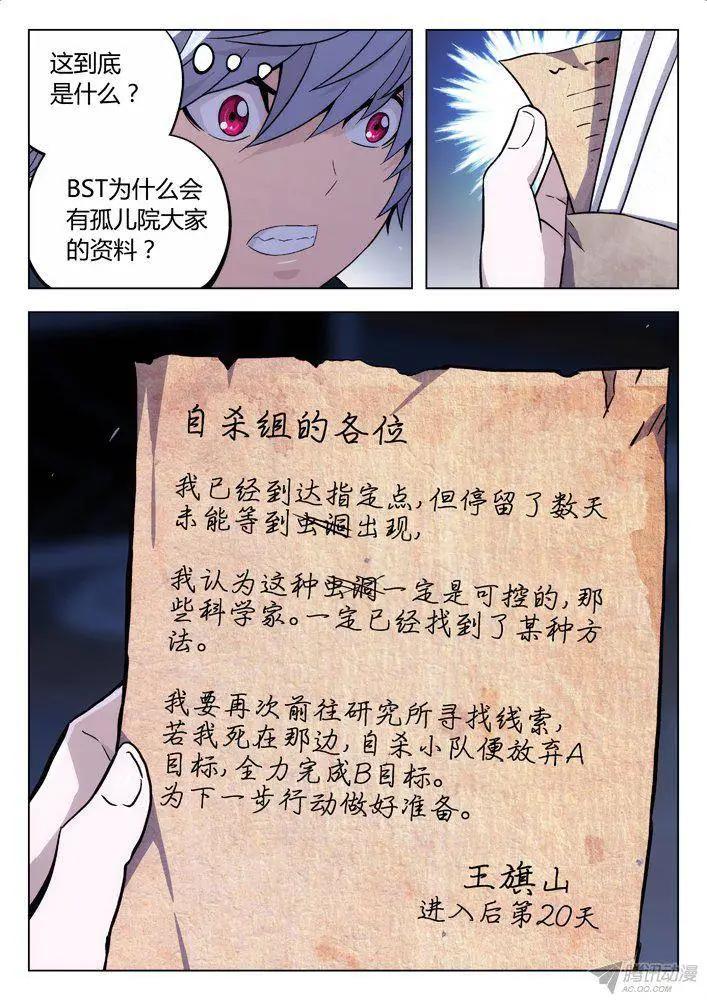 这到底
是什么？
BST为什么会
有孤儿院大家
的资料？
自杀组的各位
我已经到达指定点,但停留了数天
未能等到虫洞出现,
我认为这种虫洞一定是可控的,那
些科学家。一定已经找到了某种方
法。
我要再次前往研究所寻找线索,
若我死在那边,自杀小队便放弃A
目标,全力完成B目标。
为下一步行动做好准备。
王旗山
进入后第20天
腾讯动漫
AC.QQ.COM